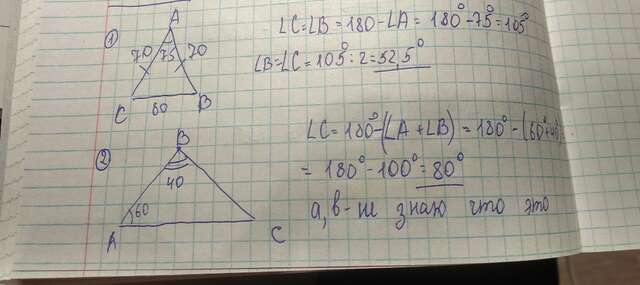 ①
A
70 75 70
C 60 B
∠C=∠B = 180 - ∠A = 180° - 75° = 105°
∠B = ∠C = 105° : 2 = 52,5°
②
B
40
60
A C
∠C = 180° - (∠A + ∠B) = 180° - (60° + 40°)
= 180° - 100° = 80°
a, b - не знаю что это